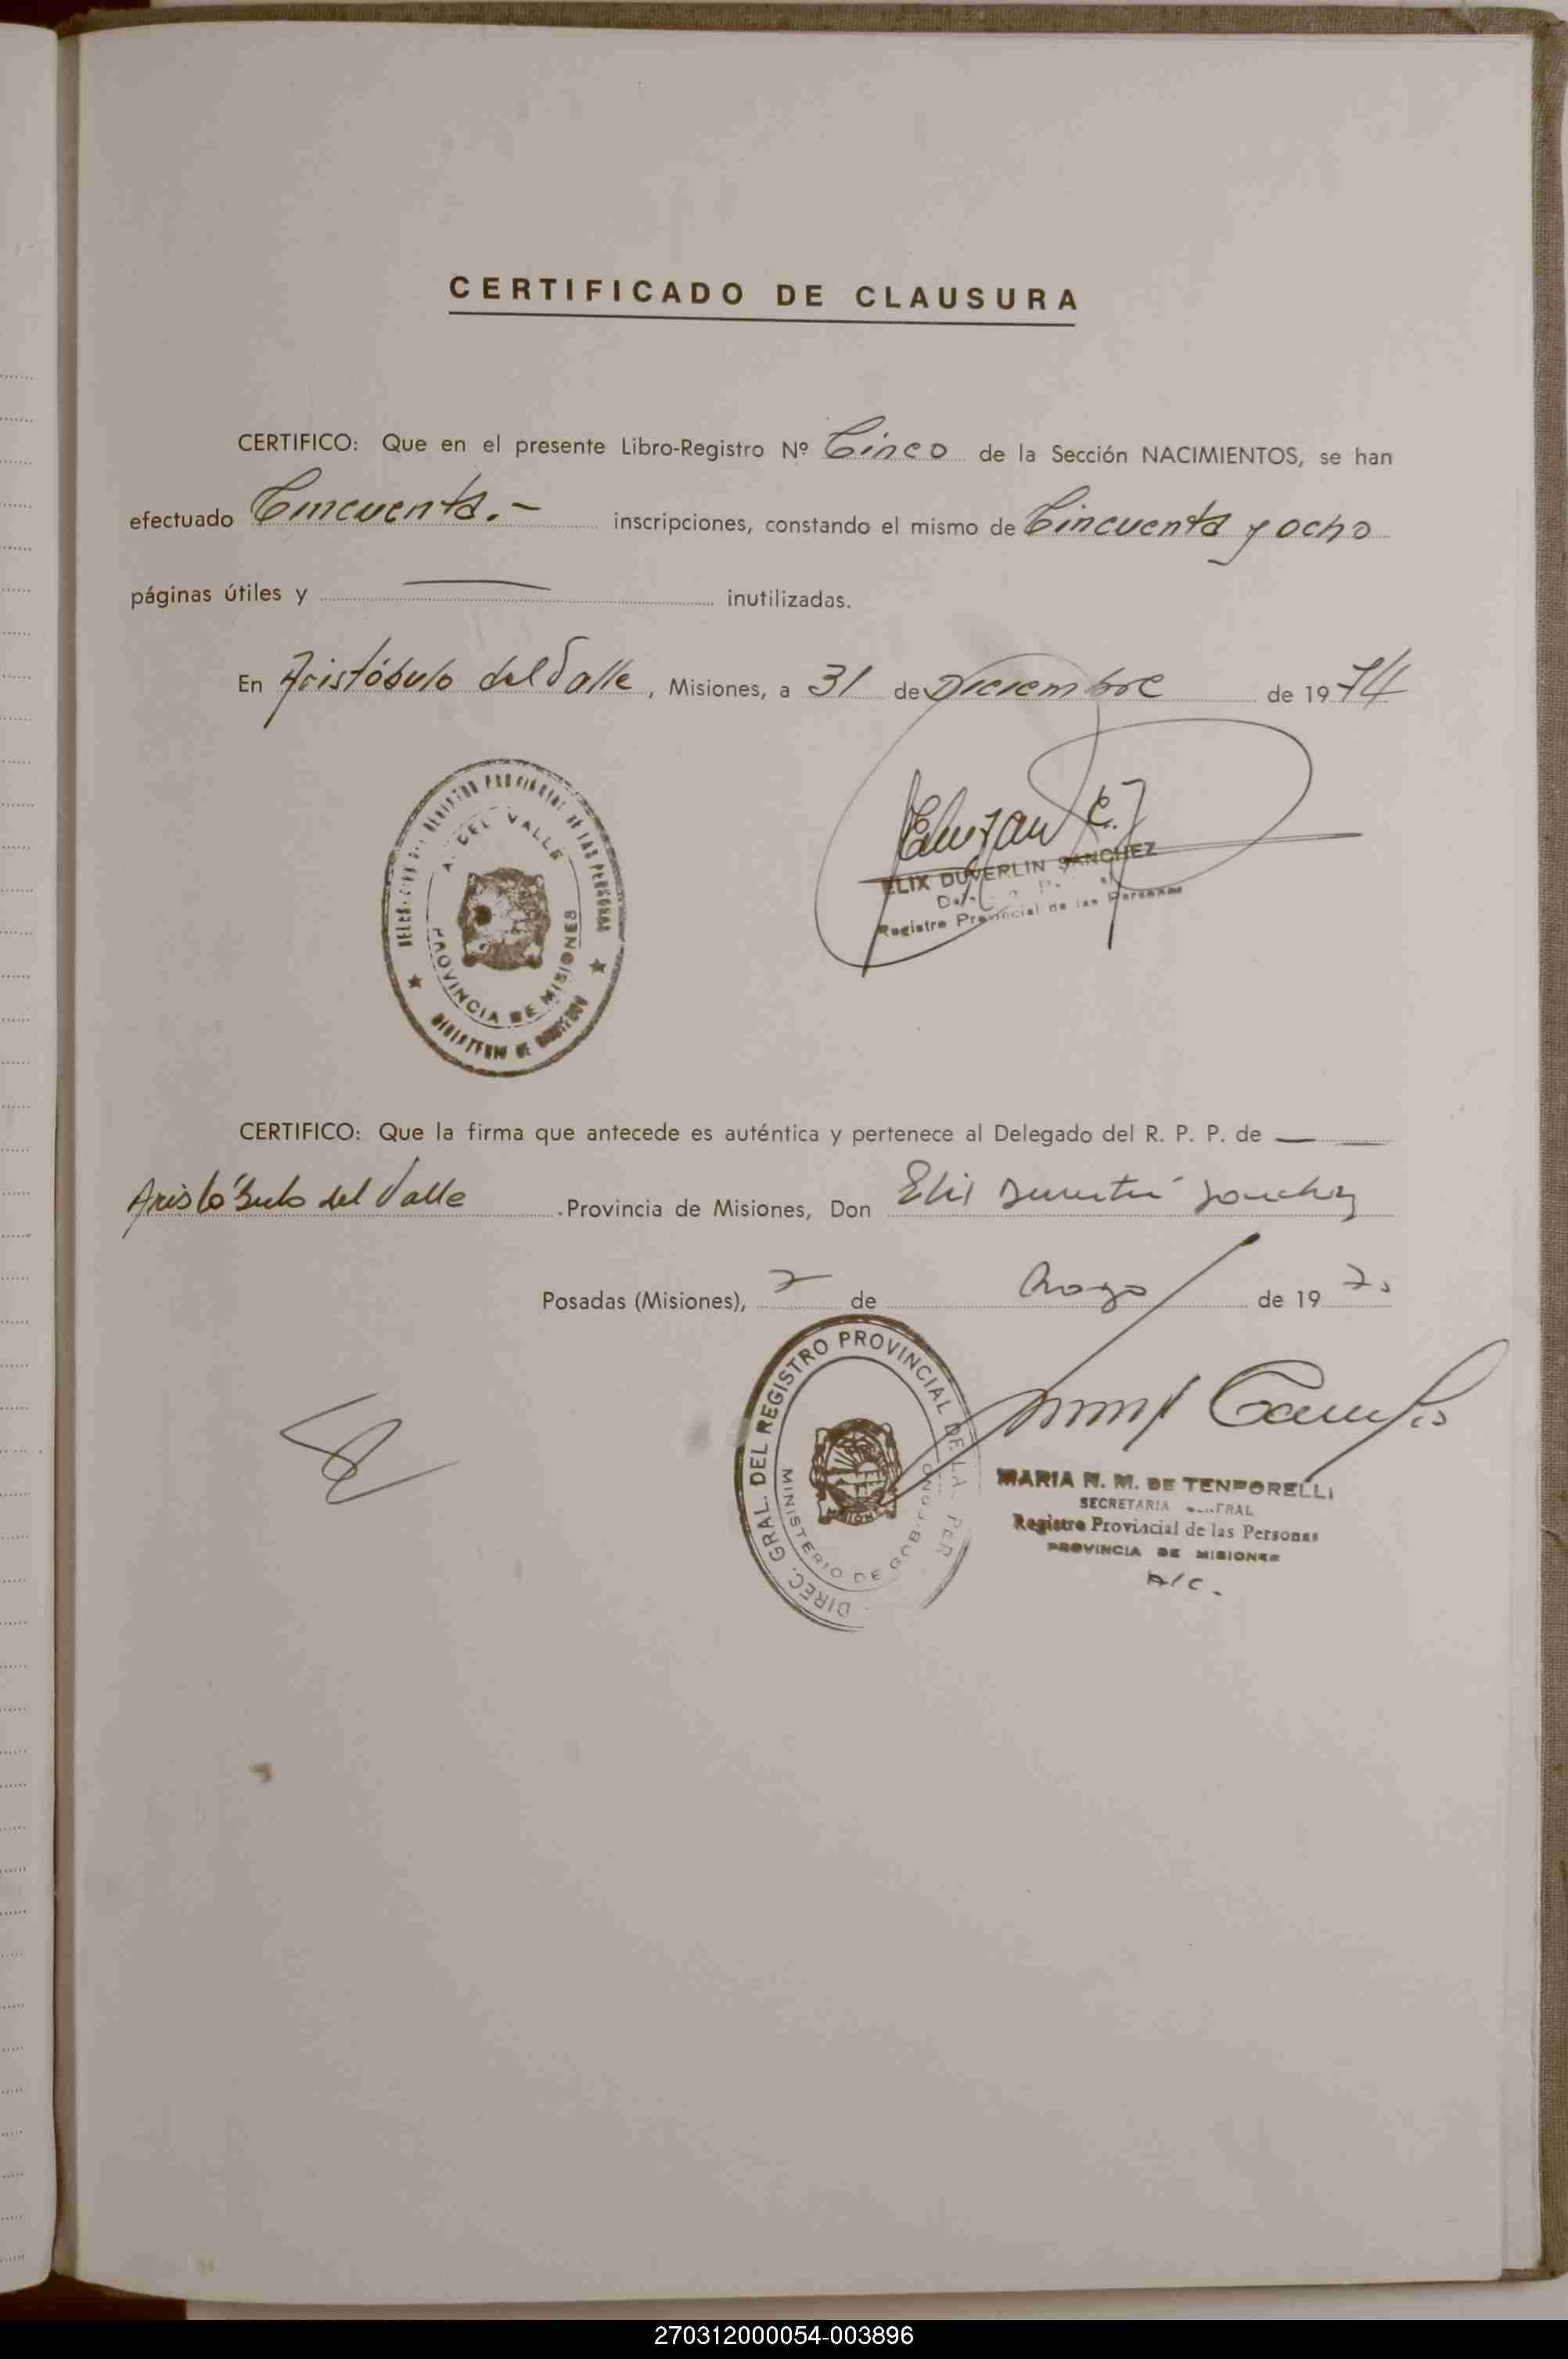 CERTIFICADO DE CLAUSURA
CERTIFICO: Que en el presente Libro-Registro Nº Cinco de la Sección NACIMIENTOS, se han
efectuado Cincuenta.- inscripciones, constando el mismo de Cincuenta y ocho
páginas útiles y — inutilizadas.
En Aristóbulo del Valle, Misiones, a 31 de Diciembre de 1974
A. DEL VALLE
PROVINCIA DE MISIONES
ELIX DUVERLIN SANCHEZ
Registro Provincial de las Personas
CERTIFICO: Que la firma que antecede es auténtica y pertenece al Delegado del R. P. P. de —
Aristóbulo del Valle. Provincia de Misiones, Don
Posadas (Misiones), 7 de de 19
DIREC. GRAL. DEL REGISTRO PROVINCIAL DE LA PER
MINISTERIO DE GOBIERNO
MARIA N. M. DE TENPORELLI
SECRETARIA
Registro Provincial de las Personas
PROVINCIA DE MISIONES
A/C.-
270312000054-003896